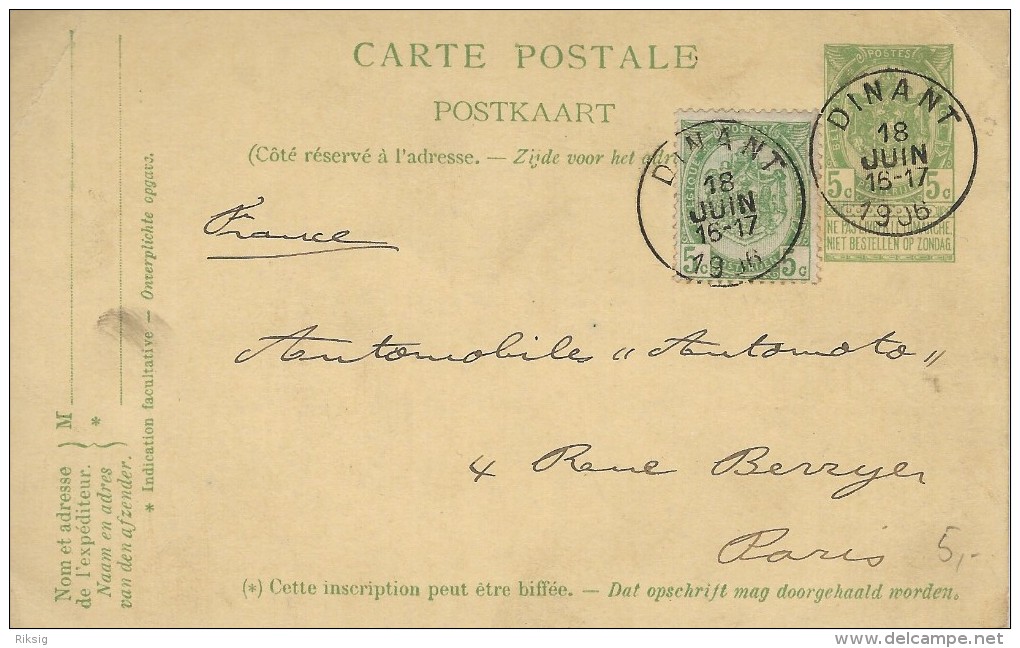 CARTE POSTALE
POSTKAART
(Côté réservé à l'adresse. — Zijde voor het
POSTES
5c 5c
NIET BESTELLEN OP ZONDAG
DINANT
18
JUIN
16-17
1906
POSTES
BELGIQUE
5c 5c
DINANT
18
JUIN
16-17
1906
France
Automobiles "Automoto"
4 Rue Berryer
Paris
5,-
(*) Cette inscription peut être biffée. — Dat opschrift mag doorgehaald worden.
Nom et adresse
de l'expéditeur. } M
Naam en adres
van den afzender. } *
* Indication facultative — Onverplichte opgave.
Riksig
www.delcampe.net